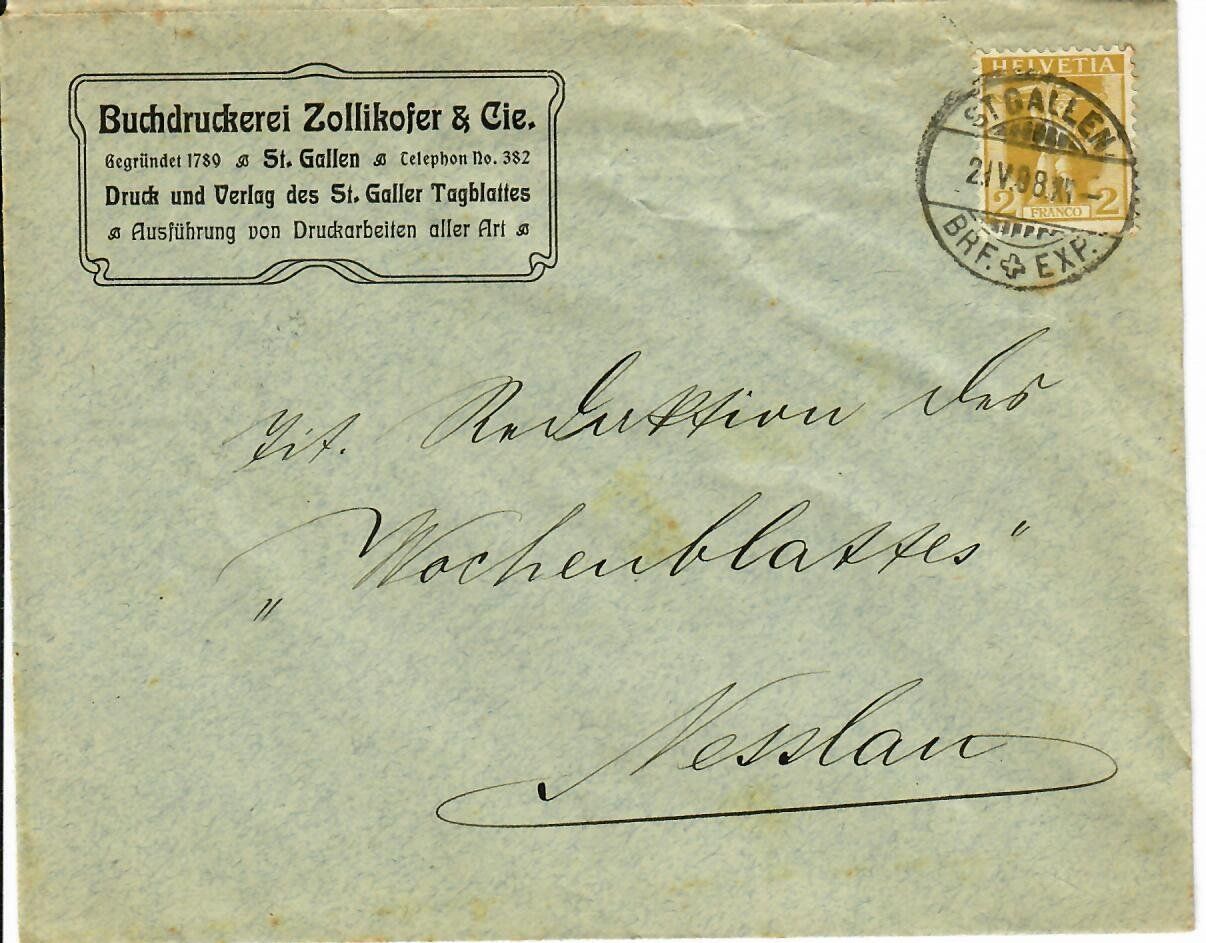 Buchdruckerei Zollikofer & Cie.
Gegründet 1789 St. Gallen Telephon No. 382
Druck und Verlag des St. Galler Tagblattes
Ausführung von Druckarbeiten aller Art
HELVETIA
2 FRANCO 2
ST. GALLEN
BRF. EXP.
Tit. Redaktion des
„Wochenblattes"
Nesslau